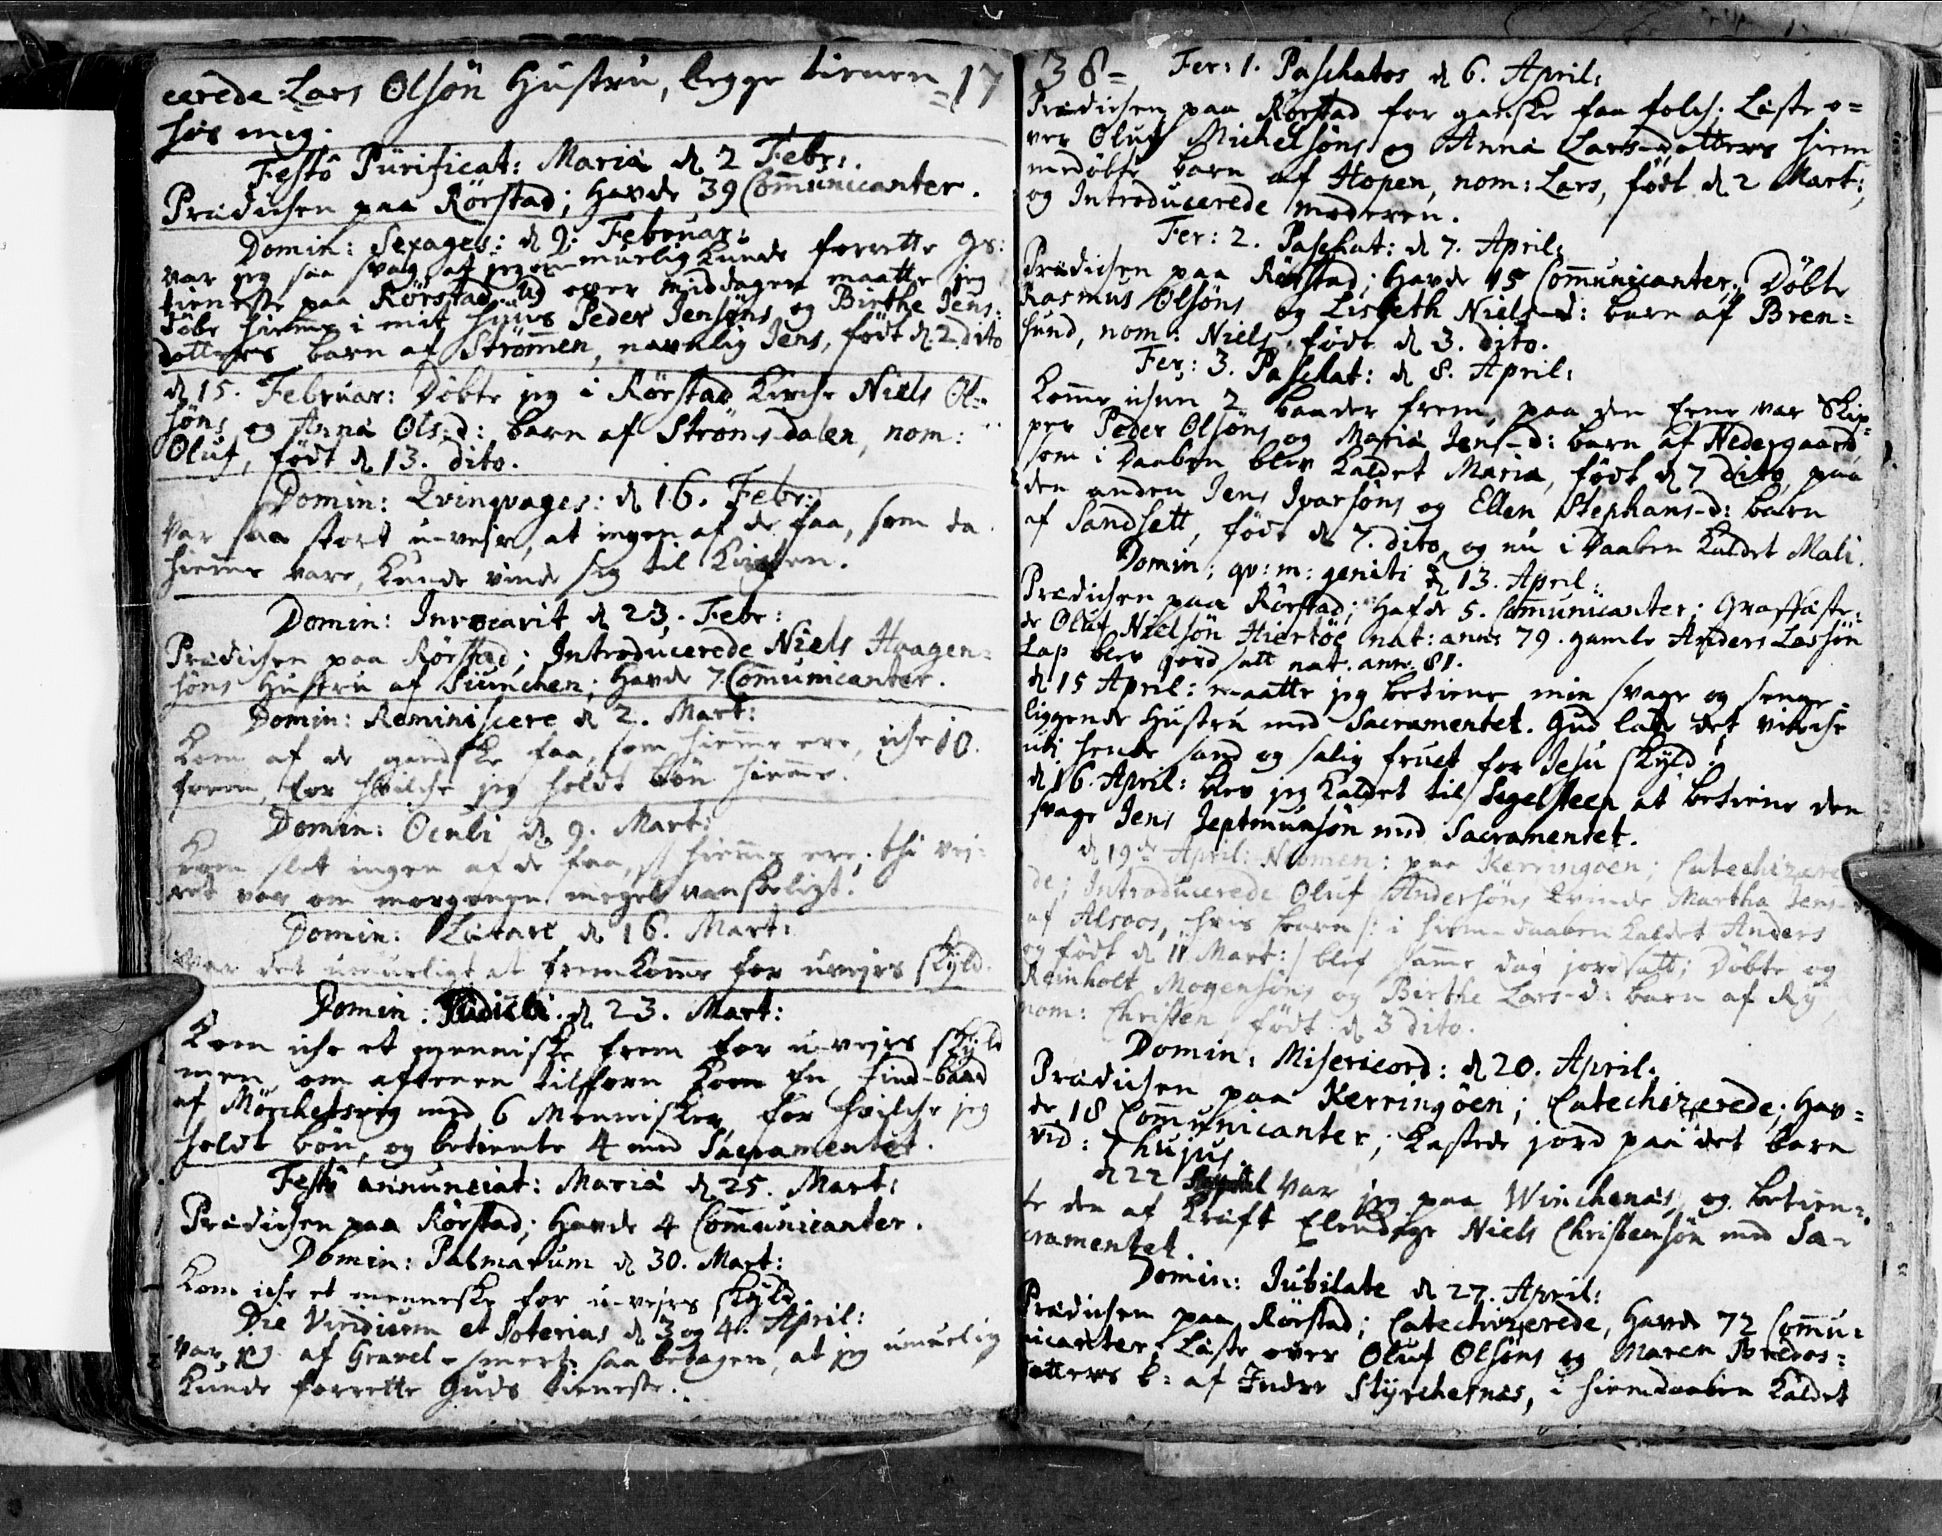 cerede Lars Olsön Hustru, begge tienen =17
hos mig.
Festô Pürificat: Mariæ d 2 Febr:.
Prædichen paa Rörstad; Havde 39 Communicanter.
Domin: Sexages: d 9: Februar:
var jeg saa svag at jeg u-muelig kunde forrette Gs:
tieneste paa Rörstad, og over middagen maatte jeg
döbe hiemme i mit Huus Peder Jensöns og Birthe Jens:
dotters barn af Strömmen, navnlig Jens, födt d 2 dito
d 15. Februar: Döbte jeg i Rörstad Kirche Niels Ol-
söns og Anna Ols-d: barn af Strömsdalen, nom:
Oluf, födt d 13. dito.
Domin: Qvinqvages: d 16. Febr:
Var saa stort u-vejr, at ingen af de faa, som da
hiemme vare, kunde vinde sig til Kirchen.
Domin: Invocavit d 23. Febr:
Prædichen paa Rörstad; Introducerede Niels Haagen-
söns Hustru af Siunchen; Havde 7 Communicanter.
Domin: Reminiscere d 2. Mart:
Kom af de gandske faa, som hiemme ere, iche 10.
frem, for hvilche jeg holdt bön hiemme.
Domin: Oculi d 9. Mart:
Kom slet ingen af de faa, s hiemme ere; thi vej-
ret var om morgenen meget vanskeligt.
Domin: Lætare d 16. Mart:
Var det umueligt at fremkomme for uvejrs skyld.
Domin: Judica d 23. Mart:
Kom iche et menniske frem for u-vejrs skyld
men om aftenen tilforn kom en Find-baad
af Mörchesvig med 6 Mennisker, for hvilche jeg
holdt bön, og betiente 4 med Sacramentet.
Festô annunciat: Mariæ d 25. Mart:
Prædichen paa Rörstad; Havde 4 Communicanter.
Domin: Palmarum d 30. Mart:
Kom iche et menneske for u-vejrs skyld.
Die Viridium et Soterias d 3 og 4. April:
Var jeg af Gravel-smerte saa betagen, at jeg umuelig
kunde forrette Guds tieneste.
38= Fer: 1. Paschatos d 6. April:
Prædichen paa Rörstad for ganske faa folch; Læste o-
ver Oluf Michelsöns og Anna Lars-dotters hiem-
medöbte barn af Hopen, nom: Lars, födt d 2 Mart;
og Introducerede moderen.
Fer: 2. Paschat: d 7. April:
Prædichen paa Rörstad; Havde 15 Communicanter; Döbte
Rasmus Olsöns og Lisbeth Niels-d: barn af Bren-
sund, nom: Niels, födt d 3. dito.
Fer: 3. Paschat: d 8. April:
Komme ichun 2 baader frem, paa den eene var Skip-
per Peder Olsöns og Maria Jens-d: barn af Nedergaard
som i Daaben blev kaldet Maria, födt d 7 dito, paa
den anden Jens Ivarsöns og Ellen Stephans-d: barn
af Sandsett, födt d 7. dito og nu i Daaben kaldet Mali.
Domin; qv: m: geniti d 13. April:
Prædichen paa Rörstad; Hafde 5. Communicanter; Graffæste-
de Oluf Nielsön Hiertöe nat: anno 79. gamle Anders Lassön
Lap blev jord satt nat. ann: 81.
d 15 April: maatte jeg betiene min svage og senge-
liggende Hustru med Sacramentet. Gud lade det virche
udi hende sand og salig fruct for Jesu skyld!
d 16. April: blev jeg kaldet til Segelsteen at betiene den
svage Jens Jeptmunsön med Sacramentet.
d 19de April: No͞men: paa Kerringöen; Catechizere-
de; Introducerede Oluf Andersöns Qvinde Martha Jens-d:
af Alsoos, hvis barn /: i hiemme-daaben kaldet Anders
og födt d 11 Mart: / blef samme dag jordsatt; Döbte og
Reinholt Mogensöns og Berthe Lars-d: barn af Ry
nom: Christen födt d 3 dito.
Domin: Misericord: d 20. April.
Prædichen paa Kerringöen; Catechizerede; Hav-
de 18 Communicanter; Kastede jord paa det barn
vid: 7 hujus.
d 22 April Var jeg paa Winchenæs, og betien-
te den af Kræft Elendige Niels Christensön med Sa-
cramentet.
Domin: Jubilate d 27. April:
Prædichen paa Rörstad; Catechizerede, Havde 72 Commu-
nicanter. Læste over Oluf Olsöns og Maren Pedors-
dotters b: af Indre Styrchesnæs, i hiemdaaben kaldet